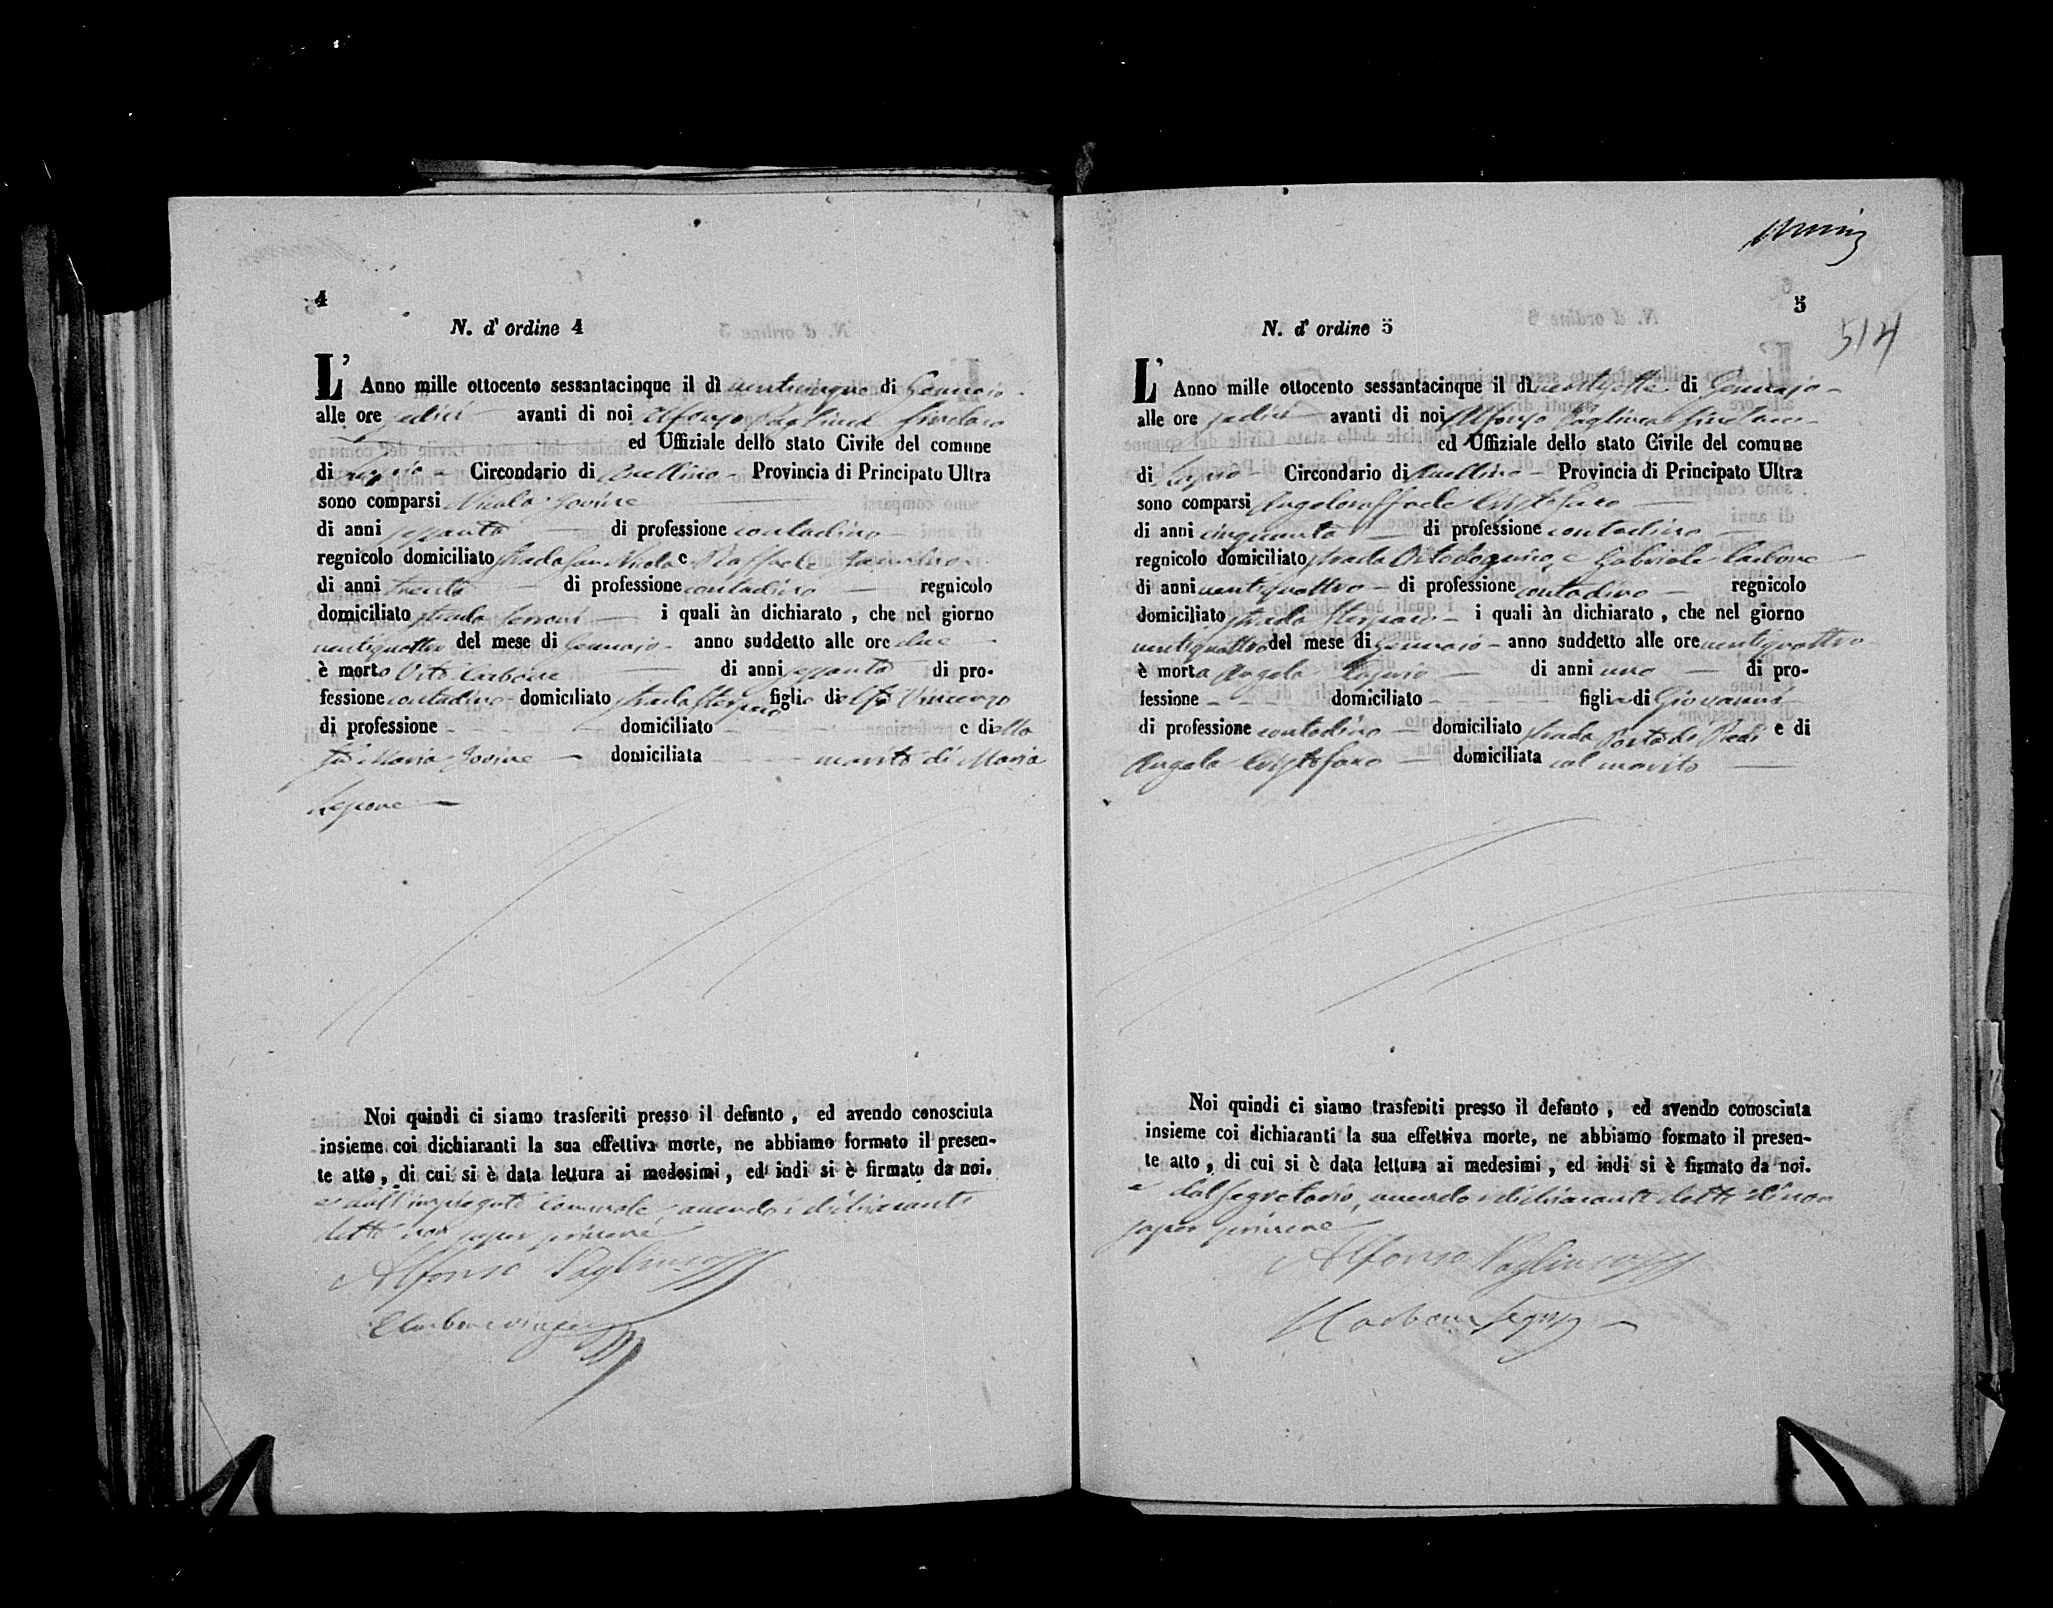 4
N. d' ordine 4
L' Anno mille ottocento sessantacinque il dì venticinque di Gennaio
alle ore sedici avanti di noi Alfonso Sindaco
ed Uffiziale dello stato Civile del comune
di Circondario di Avellino Provincia di Principato Ultra
sono comparsi Nicola Iovine
di anni sessanta di professione contadino
regnicolo domiciliato strada San Nicola e Raffaele
di anni trenta di professione contadino regnicolo
domiciliato strada i quali àn dichiarato , che nel giorno
ventiquattro del mese di Gennajo anno suddetto alle ore due
è morto Vito Carbone di anni sessanta di pro-
fessione contadino domiciliato strada figlio di Vincenzo
di professione domiciliato e di
fu Maria Iovine domiciliata marito di Maria
Lepore
Noi quindi ci siamo trasferiti presso il defunto , ed avendo conosciuta
insieme coi dichiaranti la sua effettiva morte, ne abbiamo formato il presen-
te atto , di cui si è data lettura ai medesimi , ed indi si è firmato da noi.
e dall'impiegato comunale, avendo i dichiaranti
detto non saper scrivere
Alfonso
5
514
N. d' ordine 5
L' Anno mille ottocento sessantacinque il dì ventisette di Gennajo
alle ore sedici avanti di noi Alfonso Sindaco
ed Uffiziale dello stato Civile del comune
di Circondario di Avellino Provincia di Principato Ultra
sono comparsi Angeloraffaele Cristofaro
di anni cinquanta di professione contadino
regnicolo domiciliato strada e Gabriele Carbone
di anni ventiquattro di professione contadino regnicolo
domiciliato strada i quali àn dichiarato , che nel giorno
ventiquattro del mese di Gennaio anno suddetto alle ore ventiquattro
è morta Angela di anni uno di pro-
fessione domiciliato figlia di Giovanni
di professione contadino domiciliato strada Porta di e di
Angela Cristofaro domiciliata col marito
Noi quindi ci siamo trasferiti presso il defunto , ed avendo conosciuta
insieme coi dichiaranti la sua effettiva morte, ne abbiamo formato il presen-
te atto , di cui si è data lettura ai medesimi , ed indi si è firmato da noi.
e dal segretario, avendo i dichiaranti detto di non
saper scrivere
Alfonso
Carbone